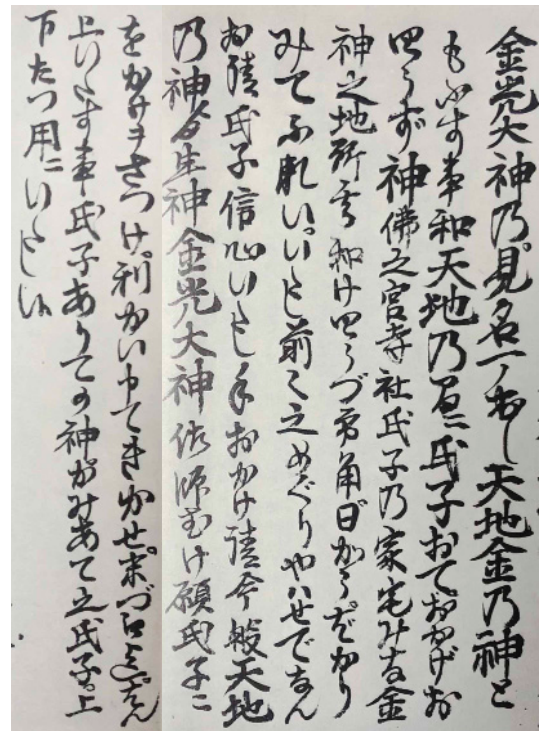 金光大神乃。見名一ッ出し天地金乃神と
もふす事和天地乃間ニ氏子おて。おかげお
四らず神佛之宮寺社氏子乃家宅みな金
神之地所和け四らづ方角日がら。ばかり
みて不礼いたし前々之めぐりやハせでなん
お請氏子信心いたしおかけ請今般天地
乃神より生神金光大神むけ願氏子ニ
をかけヲさつけ。利かい申てきかせ。末づ迄はん
上いたす事氏子ありての神かみあて之氏子。上
下たつ用ニいたし候